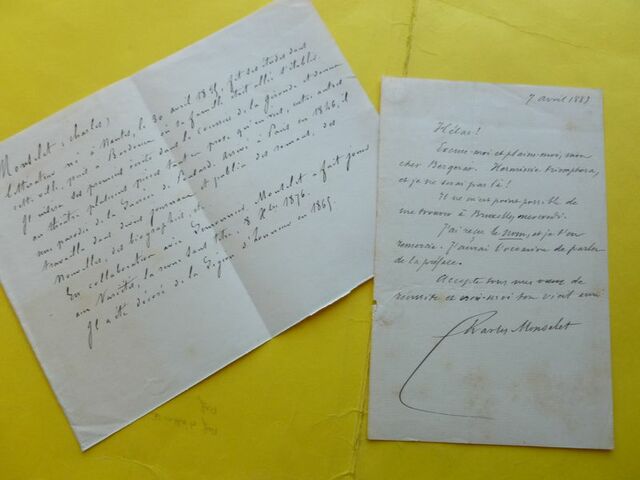 Monselet (Charles)
littérateur né à Nantes, le 30 avril 1825, fit ses études dans
cette ville, puis à Bordeaux où sa famille était allée s'établir.
Il inséra ses premiers écrits dans le Courrier de la Gironde et donna
au théâtre plusieurs pièces tant en prose qu'en vers, entre autres
une parodie de la Ponsard. Arrivé à Paris en 1846, il
travailla dans divers journaux et publia des romans, des
nouvelles, des biographies, etc.
En collaboration avec Monselet a fait jouer
aux Variétés, la revue sans titre. 8 Xbre 1876.
Il a été décoré de la Légion d'honneur en 1865.
7 avril 1883
Hélas!
Excuse-moi et plains-moi, mon
cher Bergerat. Herminie triomphera,
et je ne serai pas là!
Il ne m'est point possible de
me trouver à Bruxelles mercredi.
J'ai reçu le Nom, et je t'en
remercie. J'aurai l'occasion de parler
de la préface.
Accepte tous mes vœux de
réussite et crois-moi ton vieil ami
Charles Monselet